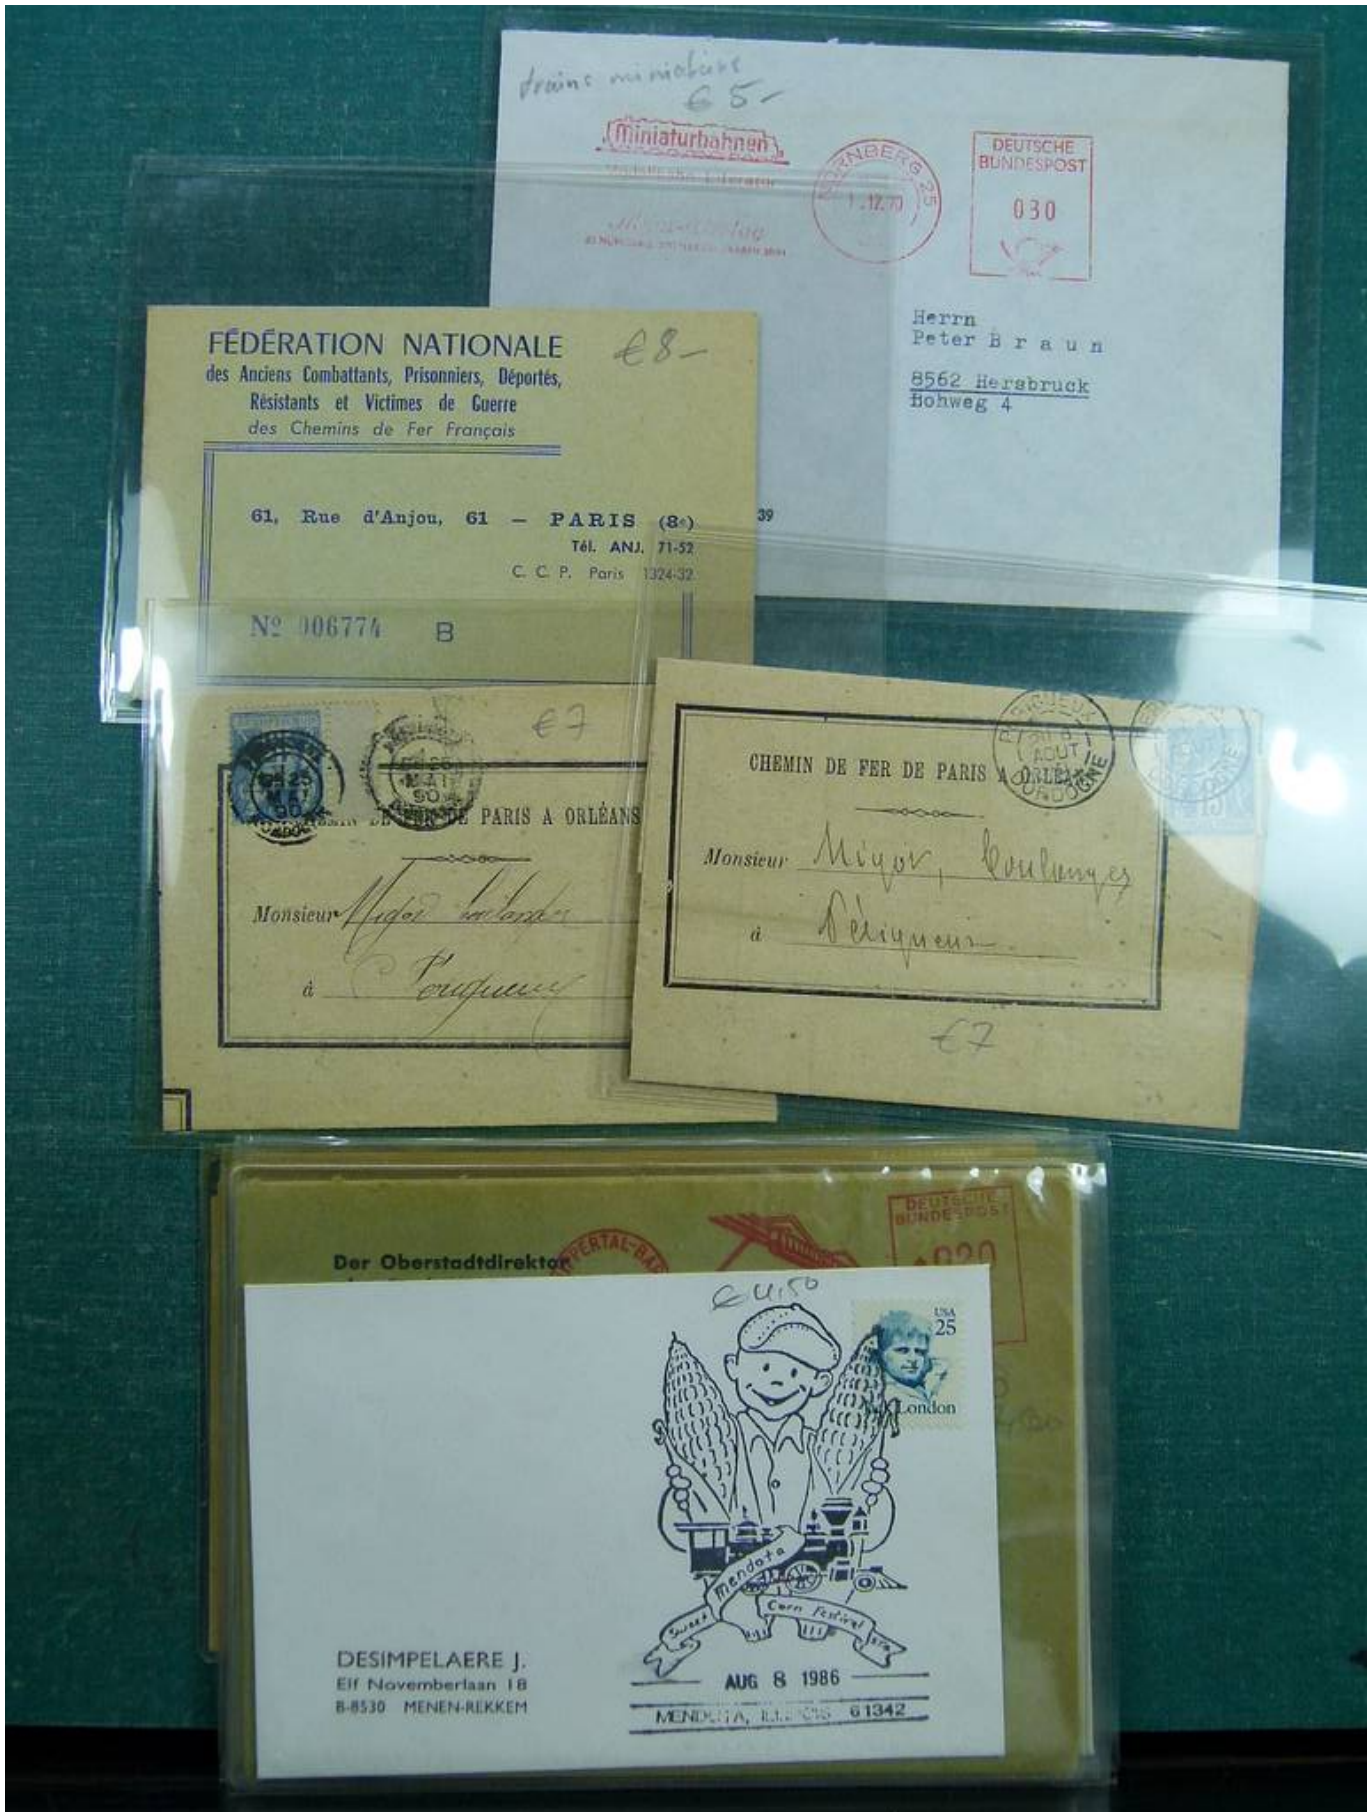 trains miniature
€ 5-
Miniaturbahnen
NÜRNBERG 25
.12.70
DEUTSCHE
BUNDESPOST
030
Herrn
Peter Braun
8562 Hersbruck
Bohweg 4
39
FÉDÉRATION NATIONALE
€ 8-
des Anciens Combattants, Prisonniers, Déportés,
Résistants et Victimes de Guerre
des Chemins de Fer Français
61, Rue d'Anjou, 61 — PARIS (8e)
Tél. ANJ. 71-52
C. C. P. Paris 1324-32
Nº 006774 B
€7
25
MAI
90
DE FER DE PARIS A ORLÉANS
Monsieur
à
PERIGUEUX
AOUT
DORDOGNE
15
CHEMIN DE FER DE PARIS A ORLÉANS
Monsieur Migot, Coulanges
à Périgueux
€7
Der Oberstadtdirektor
WUPPERTAL-BA
DEUTSCHE
BUNDESPOST
020
€ 4,50
USA
25
Jack London
Mendota
Sweet Corn Festival
AUG 8 1986
MENDOTA, ILLINOIS 61342
DESIMPELAERE J.
Elf Novemberlaan 18
B-8530 MENEN-REKKEM